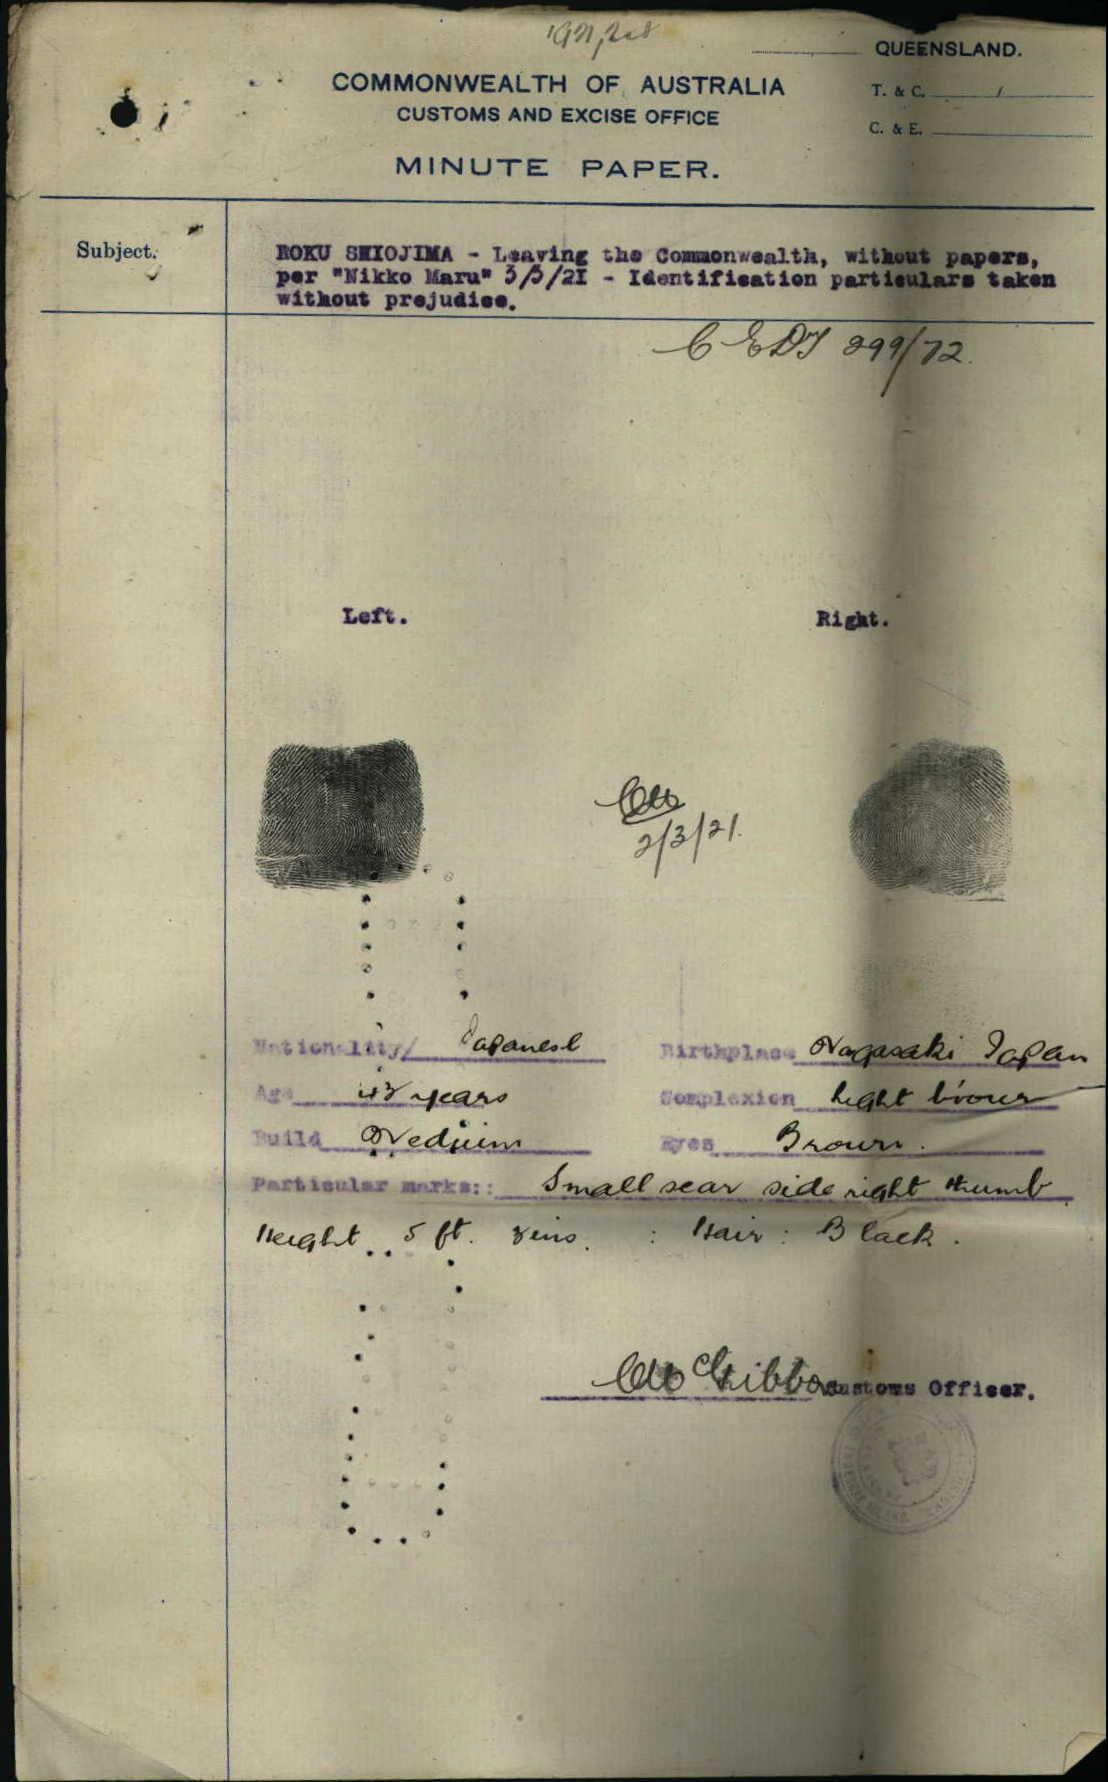 QUEENSLAND.
COMMONWEALTH OF AUSTRALIA
T. & C.
CUSTOMS AND EXCISE OFFICE
C. & E.
MINUTE PAPER.
Subject.
ROKU SHIOJIMA - Leaving the Commonwealth, without papers,
per "Nikko Maru" 3/3/21 - Identification particulars taken
without prejudice.
C EDT 299/72.
Left. Right.
2/3/21.
Nationality/ Japanese Birthplace Nagasaki Japan
Age years Complexion light brown
Build Medium Eyes Brown.
Particular marks:: Small scar side right thumb
Height 5 ft. ins. : Hair : Black.
Gibbon Customs Officer.